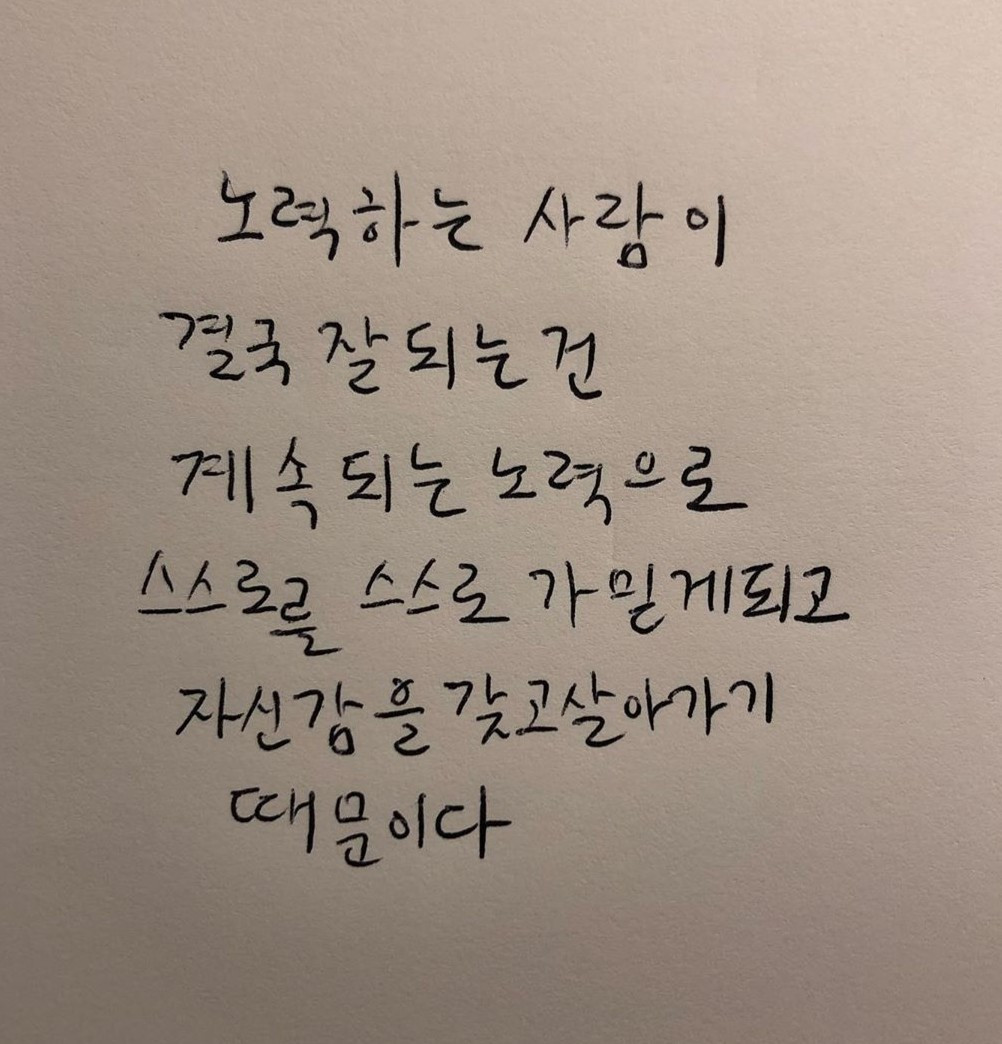 노력하는 사람이
결국 잘 되는 건
계속 되는 노력으로
스스로를 스스로가 믿게되고
자신감을 갖고살아가기
때문이다